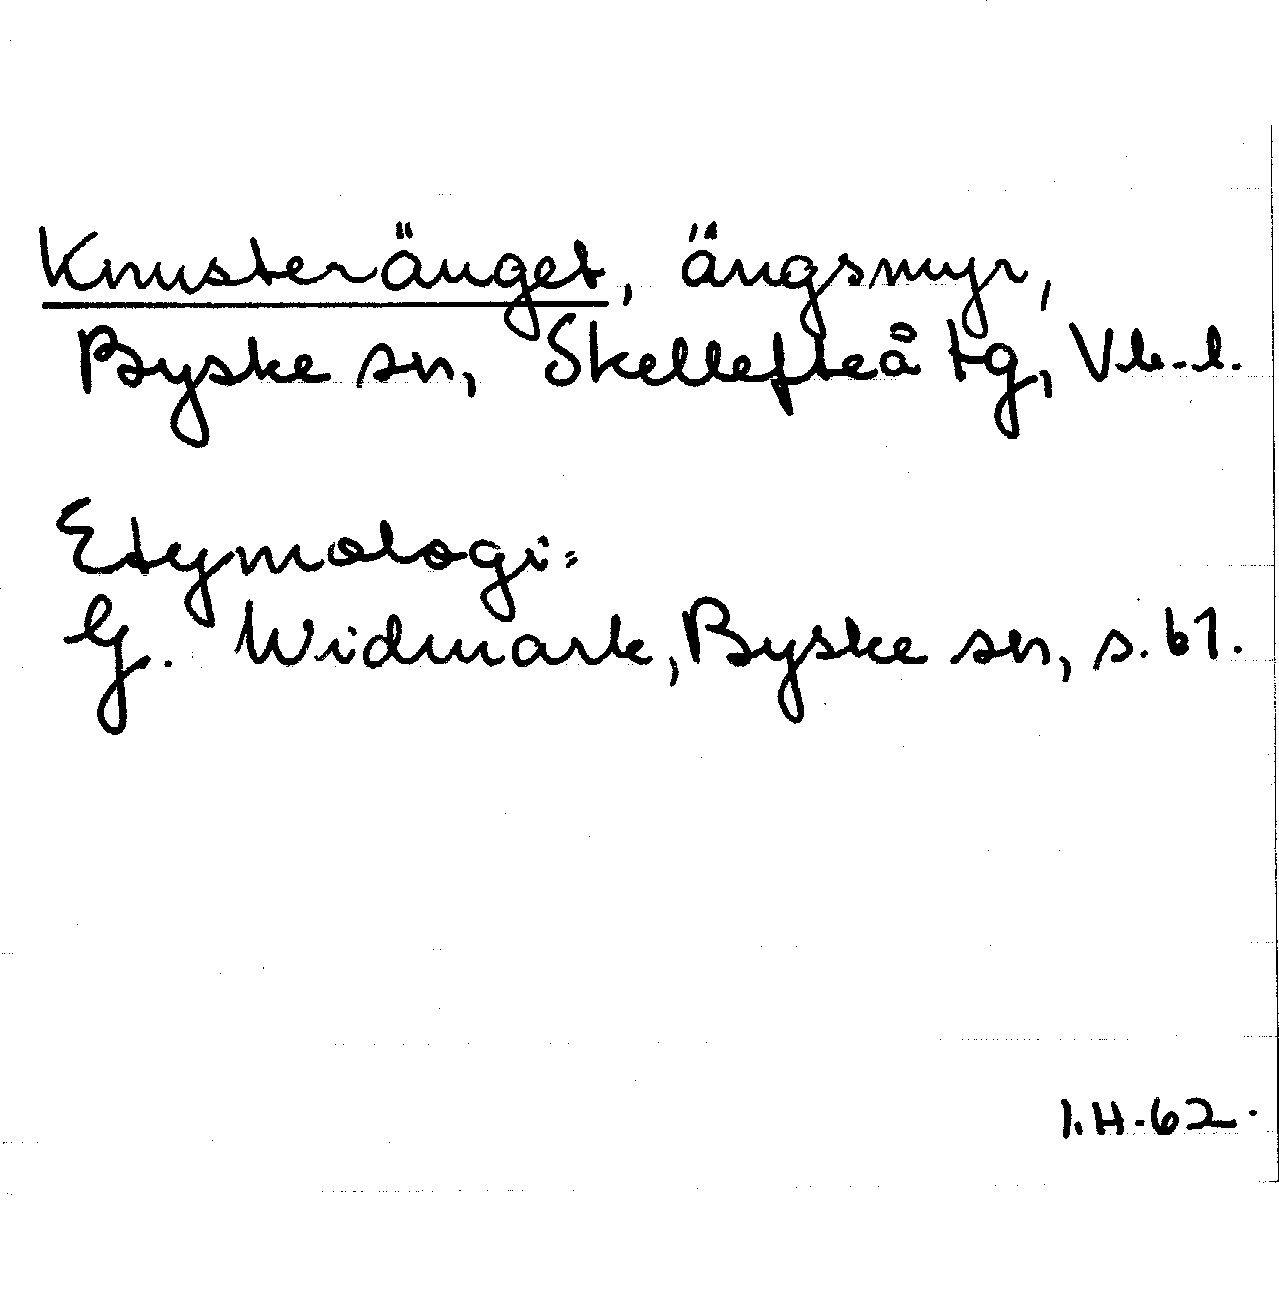 Knusteränget, ängsmyr,
Byske sn, Skellefteå tg, Vb-l.
Etymologi:
G. Widmark, Byske sn, s. 61.
I.H-62.